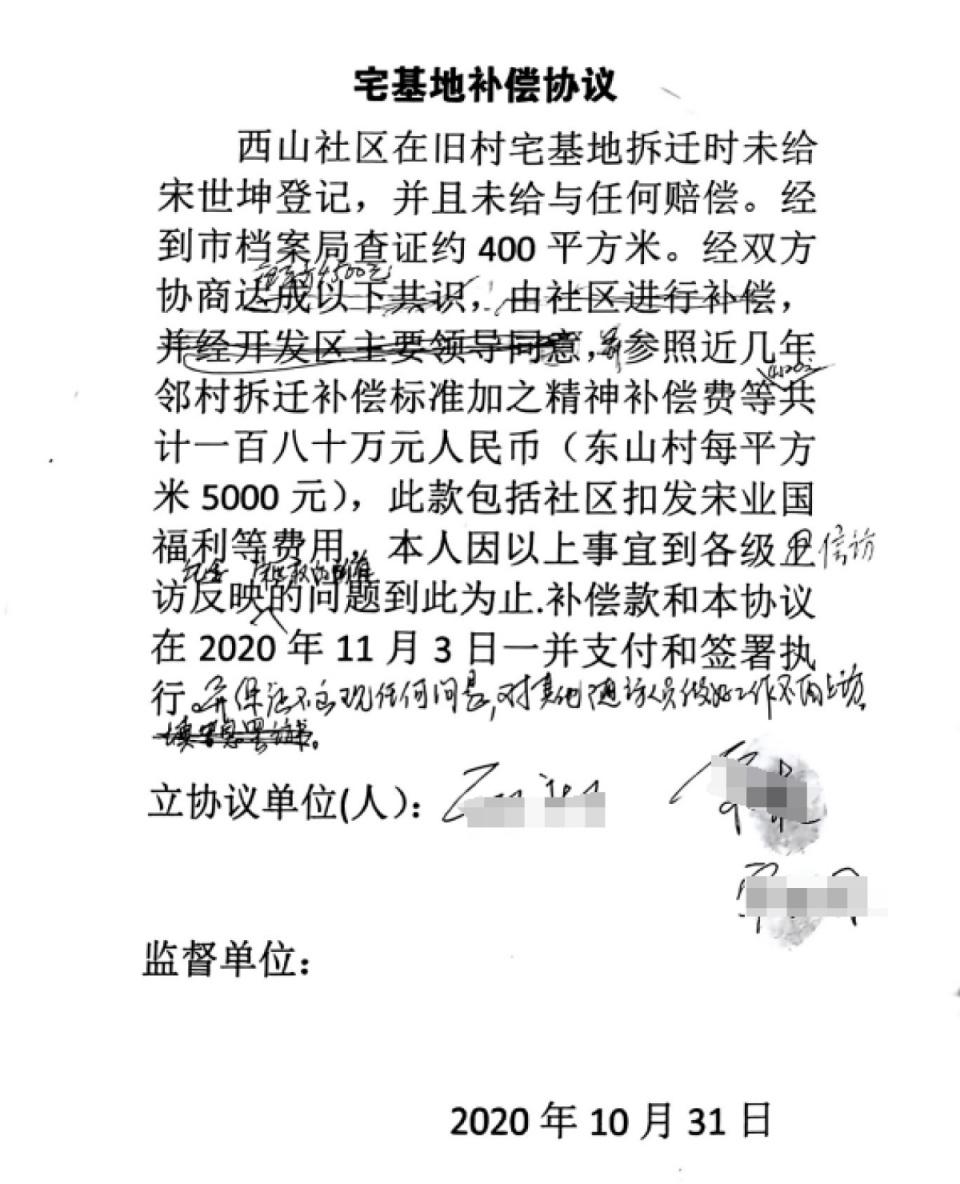 宅基地补偿协议
西山社区在旧村宅基地拆迁时未给
宋世坤登记，并且未给与任何赔偿。经
到市档案局查证约 400 平方米。经双方
协商达成以下共识，由社区进行补偿，
并经开发区主要领导同意，参照近几年
邻村拆迁补偿标准加之精神补偿费等共
计一百八十万元人民币（东山村每平方
米 5000 元），此款包括社区扣发宋业国
福利等费用。本人因以上事宜到各级信访
访反映的问题到此为止.补偿款和本协议
在 2020 年 11 月 3 日一并支付和签署执
行.并保证不出现任何问题,对其他信访人员做好工作不再上访
立协议单位(人)：
监督单位：
2020 年 10 月 31 日